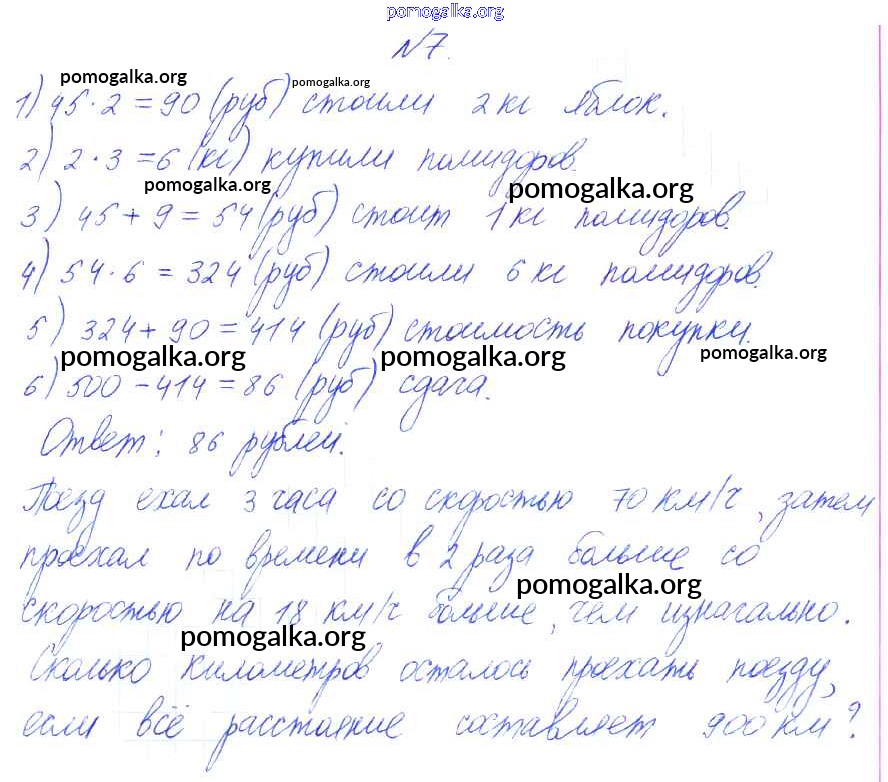 pomogalka.org
№7.
pomogalka.org pomogalka.org
1) 45·2=90 (руб) стоили 2 кг яблок.
2) 2·3=6 (кг) купили помидоров.
pomogalka.org pomogalka.org
3) 45+9=54 (руб) стоит 1 кг помидоров.
4) 54·6=324 (руб) стоили 6 кг помидоров.
5) 324+90=414 (руб) стоимость покупки.
pomogalka.org pomogalka.org pomogalka.org
6) 500-414=86 (руб) сдача.
Ответ: 86 рублей.
Поезд ехал 3 часа со скоростью 70 км/ч, затем
проехал по времени в 2 раза больше со
pomogalka.org
скоростью на 18 км/ч больше, чем изначально.
pomogalka.org
Сколько километров осталось проехать поезду,
если всё расстояние составляет 900 км?